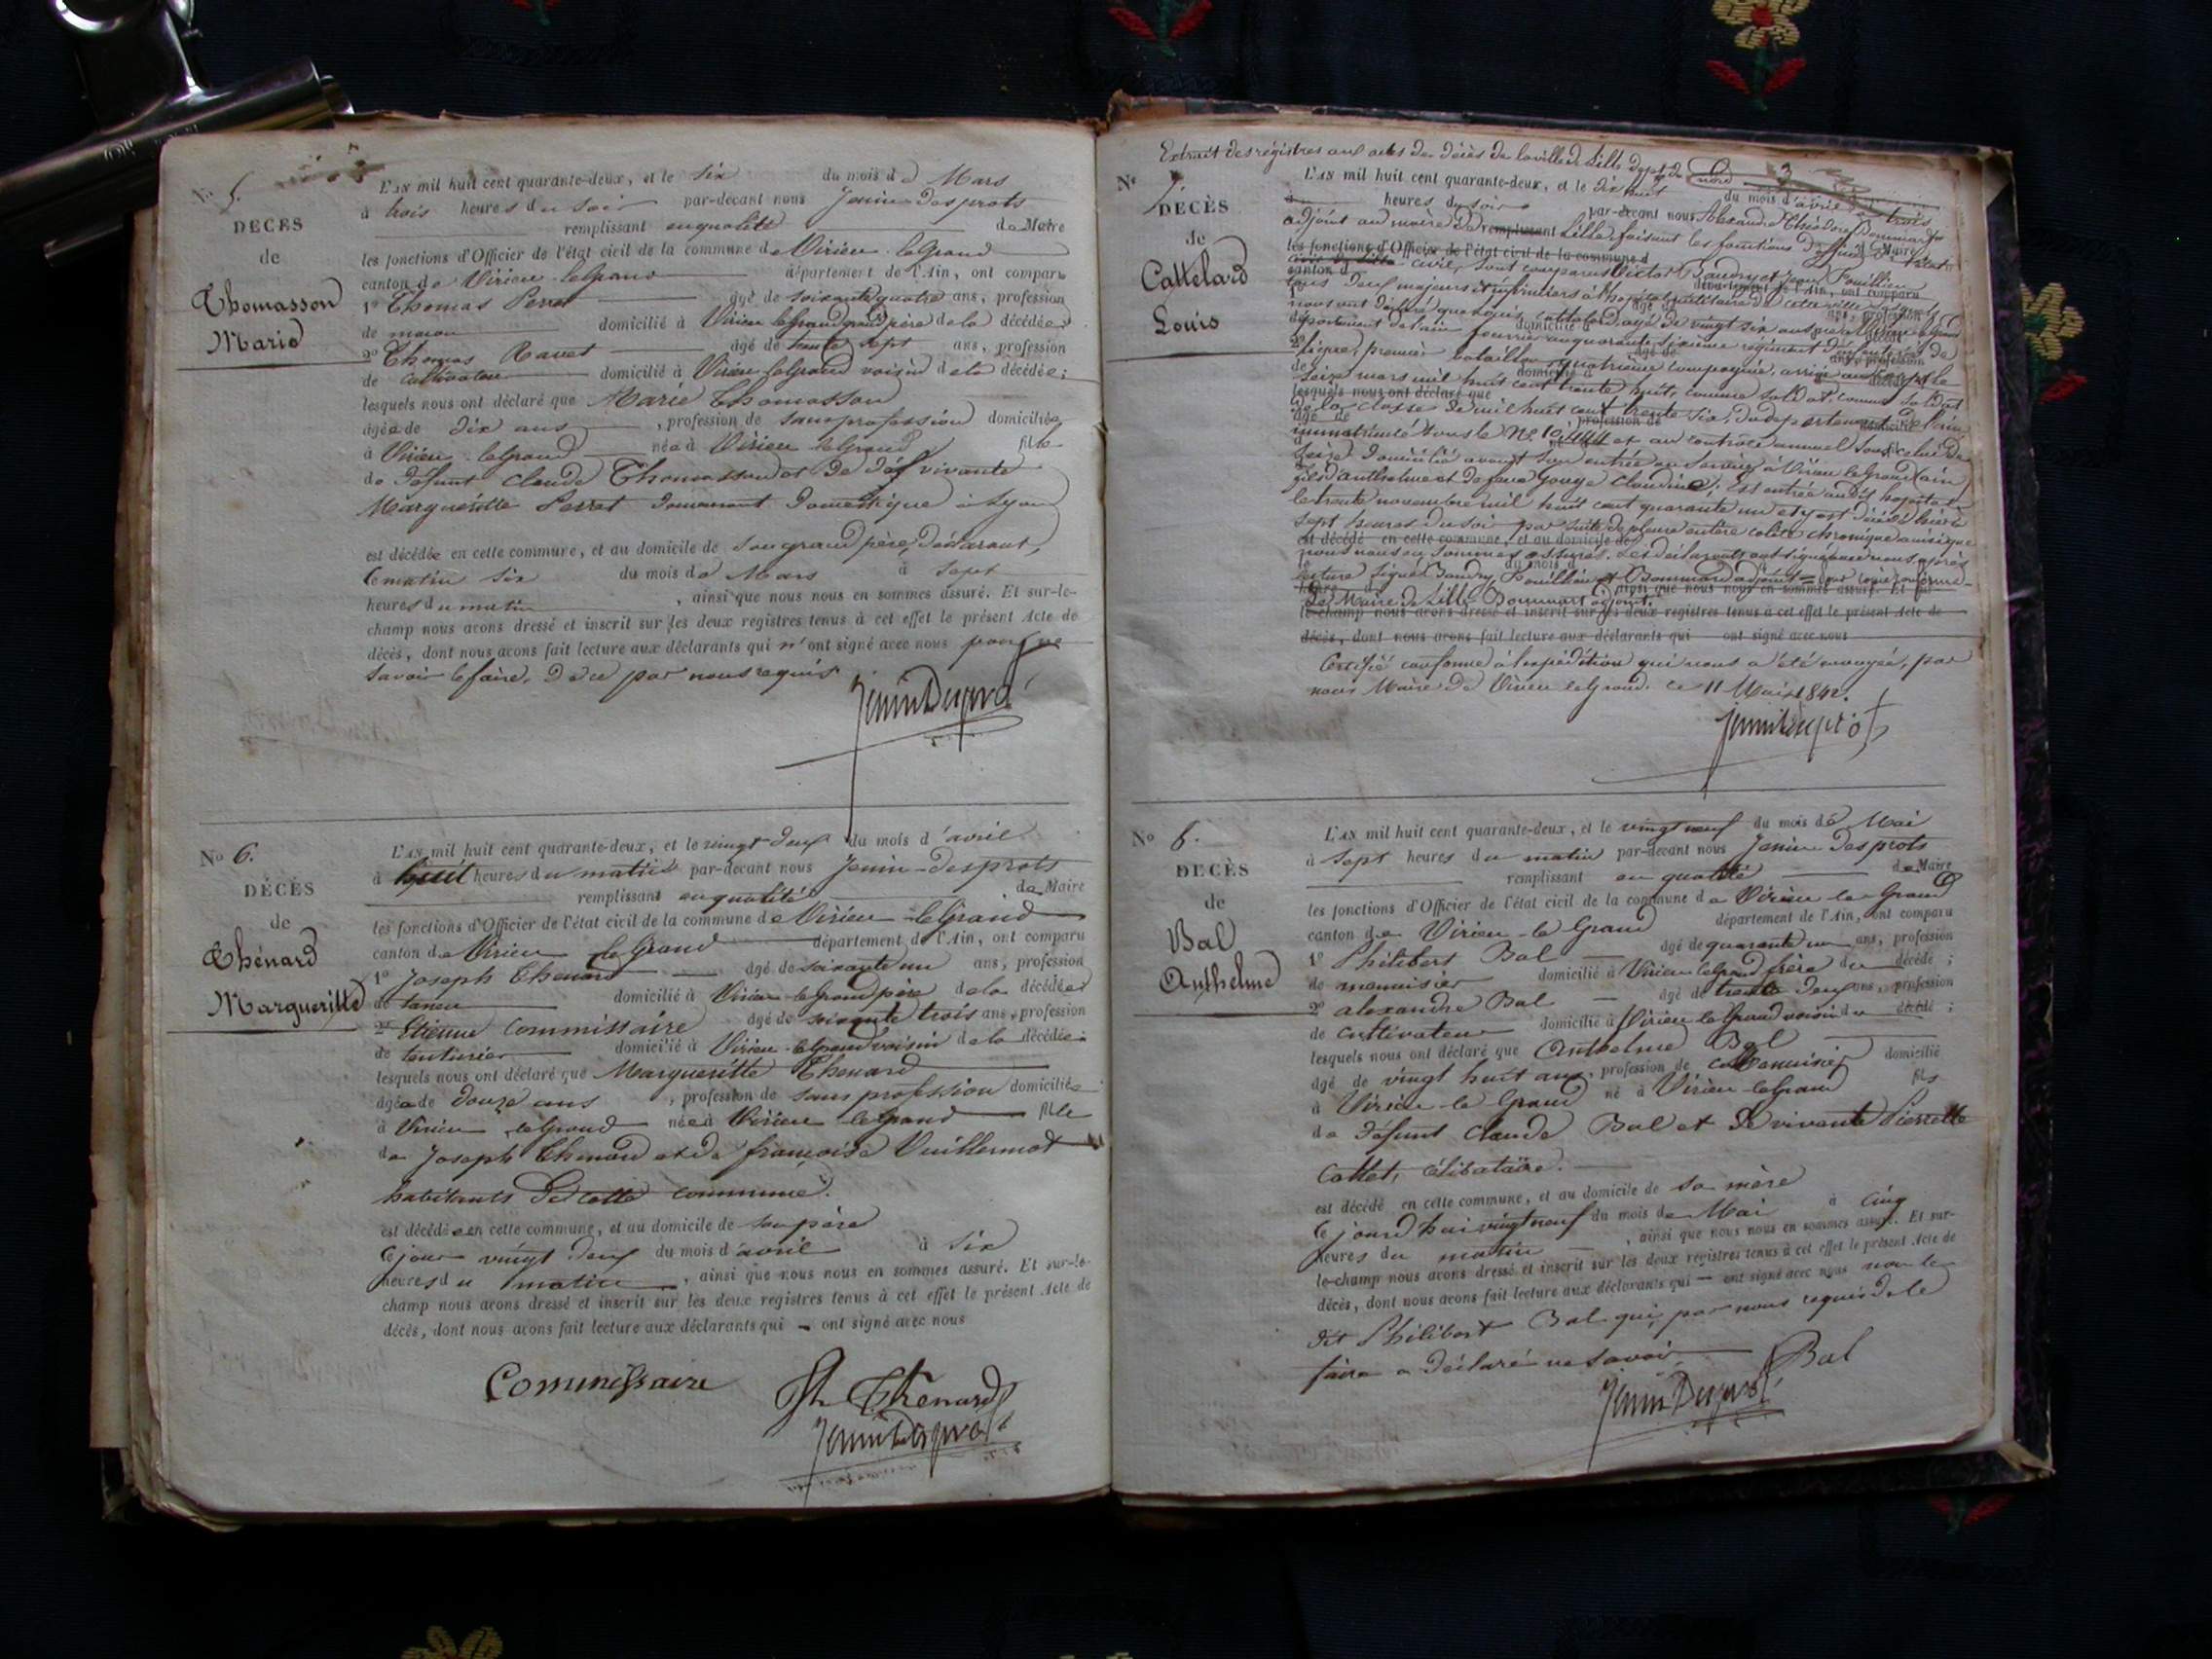 No 5.
DÉCÈS
de
Thomasson
Marie
L'AN mil huit cent quarante-deux, et le six du mois de Mars
à trois heures du soir par-devant nous Jenin-Desprots
remplissant en qualité de Maire
les fonctions d'Officier de l'état civil de la commune de Virieu-le Grand
canton de Virieu-le Grand département de l'Ain, ont comparu
1º Thomas Perret âgé de soixante quatre ans, profession
de maçon domicilié à Virieu le Grand grand père de la décédée;
2º Thomas Ravet âgé de trente sept ans, profession
de cultivateur domicilié à Virieu le Grand voisin de la décédée;
lesquels nous ont déclaré que Marie Thomasson
âgée de dix ans, profession de sans profession domiciliée
à Virieu-le Grand née à Virieu le Grand fille
de défunt Claude Thomasson et de vivante
Marguerite Perret domestique à Lyon
est décédée en cette commune, et au domicile de son grand père, déclarant,
le matin six du mois de Mars à sept
heures du matin, ainsi que nous nous en sommes assuré. Et sur-le-
champ nous avons dressé et inscrit sur les deux registres tenus à cet effet le présent Acte de
décès, dont nous avons fait lecture aux déclarants qui n'ont signé avec nous pour ne
savoir le faire, de ce par nous requis
Jenin Desprots
No 6.
DÉCÈS
de
Thénard
Margueritte
L'AN mil huit cent quarante-deux, et le vingt deux du mois d'avril
à huit heures du matin par-devant nous Jenin-Desprots
remplissant en qualité de Maire
les fonctions d'Officier de l'état civil de la commune de Virieu-le Grand
canton de Virieu le Grand département de l'Ain, ont comparu
1º Joseph Thenard âgé de soixante un ans, profession
de taneur domicilié à Virieu-le Grand père de la décédée
2º Etienne Commissaire âgé de soixante trois ans, profession
de teinturier domicilié à Virieu-le Grand voisin de la décédée;
lesquels nous ont déclaré que Margueritte Thenard
âgée de douze ans, profession de sans profession domiciliée
à Virieu le Grand née à Virieu le Grand fille
de Joseph Thenard et de françoise Vuillermot
habitants de cette commune.
est décédée en cette commune, et au domicile de son père
le jour vingt deux du mois d'avril à six
heures du matin, ainsi que nous nous en sommes assuré. Et sur-le-
champ nous avons dressé et inscrit sur les deux registres tenus à cet effet le présent Acte de
décès, dont nous avons fait lecture aux déclarants qui – ont signé avec nous
Commissaire
Jh Thenard
Jenin Desprots
Extrait des régistres aux actes de décès de la ville de Lille dept du nord 3
No 7.
DÉCÈS
de
Cattelard
Louis
L'AN mil huit cent quarante-deux, et le dix huit du mois d'avril à trois
heures du soir par-devant nous Alexandre Théodore
adjoint au maire de Lille, faisant les fonctions d'officier de l'état
civil, sont comparus Victor Baudry et Fouillien
tous deux majeurs infirmiers à l'hôpital militaire de cette ville
nous ont déclaré que Louis Cattelard, âgé de vingt six ans, né à Virieu le Grand
département de l'ain fourrier au quarante sixième régiment d'infanterie de
Ligne, premier bataillon quatrième compagnie, arrivé au corps le
seize mars mil huit cent trente huit, comme soldat
de la classe de mil huit cent trente six, du departement de l'ain
immatriculé sous le No. et au contrôle annuel sous celui de
domicilié avant son entrée au service à Virieu le Grand (ain)
fils d'anthelme et de feue Gouge Claudine; est entré audit hopital
le trente novembre mil huit cent quarante un et y est décédé hier à
sept heures du soir par suite de chronique ainsi que
nous nous en sommes assurés. Les déclarants ont signé avec nous après
lecture signé Baudry, Fouillien et adjoint = pour copie conforme
Le Maire de Lille
le-champ nous avons dressé et inscrit sur les deux registres tenus à cet effet le présent Acte de
décès, dont nous avons fait lecture aux déclarants qui ont signé avec nous
Certifié conforme à l'expédition qui nous a été envoyée, par
nous Maire de Virieu le Grand. ce 11 Mai 1842.
Jenin Desprots
No 8.
DÉCÈS
de
Bal
Anthelme
L'AN mil huit cent quarante-deux, et le vingt neuf du mois de Mai
à sept heures du matin par-devant nous Jenin-Desprots
remplissant en qualité de Maire
les fonctions d'Officier de l'état civil de la commune de Virieu-le Grand
canton de Virieu-le Grand département de l'Ain, ont comparu
1º Philibert Bal âgé de quarante un ans, profession
de menuisier domicilié à Virieu le Grand frère du décédé;
2º alexandre Bal âgé de trente deux ans, profession
de cultivateur domicilié à Virieu le Grand voisin du décédé;
lesquels nous ont déclaré que Anthelme Bal
âgé de vingt huit ans, profession de menuisier domicilié
à Virieu-le Grand né à Virieu-le Grand fils
de défunt Claude Bal et de vivante Pierrette
Cottet, célibataire.
est décédé en cette commune, et au domicile de sa mère
le jourd'hui vingt neuf du mois de Mai à cinq
heures du matin, ainsi que nous nous en sommes assuré. Et sur-
le-champ nous avons dressé et inscrit sur les deux registres tenus à cet effet le présent Acte de
décès, dont nous avons fait lecture aux déclarants qui – ont signé avec nous non le
dit Philibert Bal qui, par nous requis de le
faire a déclaré ne savoir
Bal
Jenin Desprots